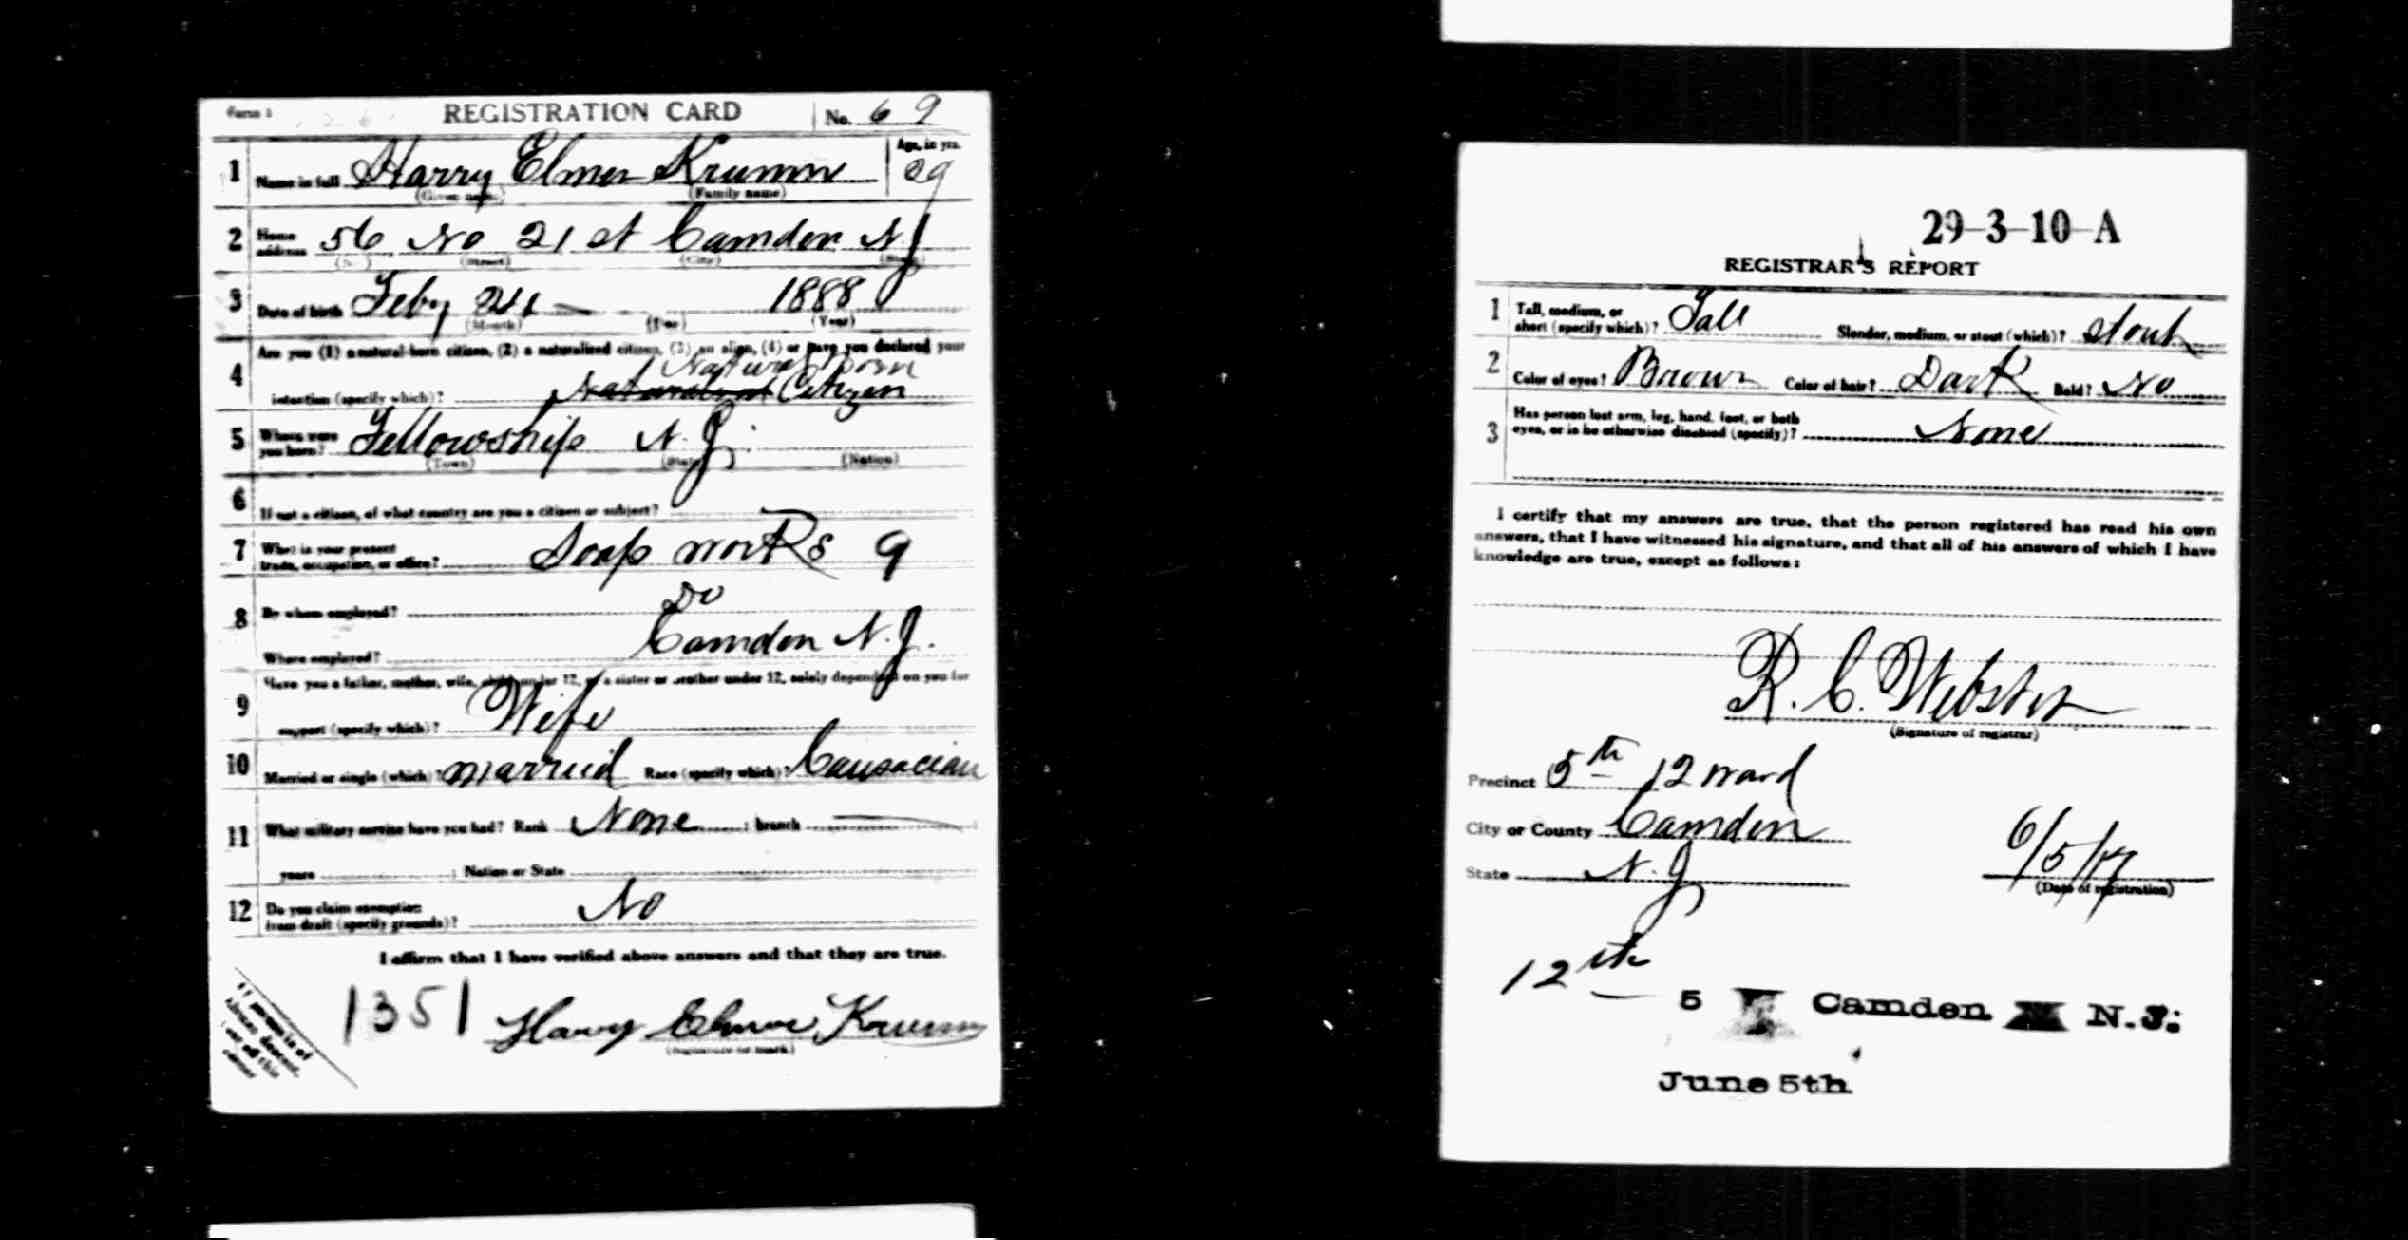 Form 1 REGISTRATION CARD No. 69
1 Name in full Harry Elmer Krumm Age, in yrs. 29
(Given name) (Family name)
2 Home address 56 No 21 st Camden N J
(No.) (Street) (City) (State)
3 Date of birth Feby 1888
(Month) (Day) (Year)
4 Are you (1) a natural-born citizen, (2) a naturalized citizen, (3) an alien, (4) or have you declared your
Natural born
intention (specify which)? Citizen
5 Where were you born? Fellowship N. J.
(Town) (State) (Nation)
6 If not a citizen, of what country are you a citizen or subject?
7 What is your present trade, occupation, or office? Soap works 9
8 By whom employed? Do
Where employed? Camden N. J.
9 Have you a father, mother, wife, child under 12, or a sister or brother under 12, solely dependent on you for
support (specify which)? Wife
10 Married or single (which)? married Race (specify which)? Causacian
11 What military service have you had? Rank None ; branch
years ; Nation or State
12 Do you claim exemption from draft (specify grounds)? No
I affirm that I have verified above answers and that they are true.
1351 Harry Elmer Krumm
(Signature or mark)
If person is of
African descent,
corner
29-3-10-A
REGISTRAR'S REPORT
1 Tall, medium, or short (specify which)? Tall Slender, medium, or stout (which)? Stout
2 Color of eyes? Brown Color of hair? Dark Bald? No
3 Has person lost arm, leg, hand, foot, or both
eyes, or is he otherwise disabled (specify)? None
I certify that my answers are true, that the person registered has read his own
answers, that I have witnessed his signature, and that all of his answers of which I have
knowledge are true, except as follows:
R. C. Webster
(Signature of registrar)
Precinct 5th 12 ward
City or County Camden
State N. J
6/5/17
(Date of registration)
12th
5 Camden N.J.
June 5th